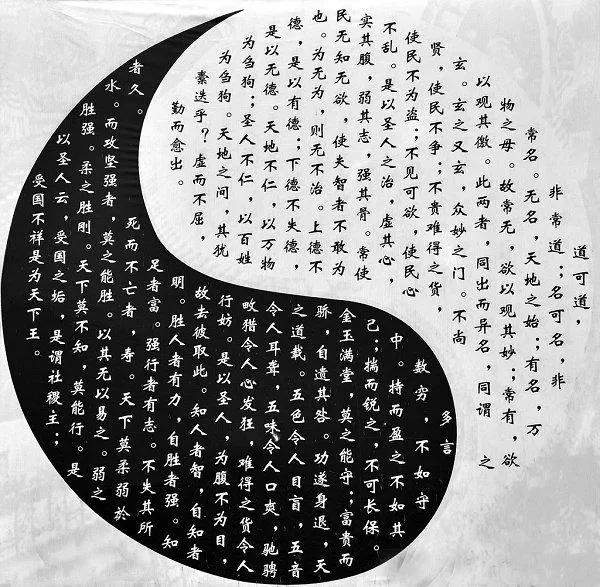 道可道，
非常道；名可名，非
常名。无名，天地之始；有名，万
物之母。故常无，欲以观其妙；常有，欲
以观其徼。此两者，同出而异名，同谓 之
玄。玄之又玄，众妙之门。不尚
贤，使民不争；不贵难得之货，
使民不为盗；不见可欲，使民心
不乱。是以圣人之治，虚其心，
实其腹，弱其志，强其骨。常使
民无知无欲，使夫智者不敢为
也。为无为，则无不治。上德不
德，是以有德；下德不失德，
是以无德。天地不仁，以万物
为刍狗；圣人不仁，以百姓
为刍狗。天地之间，其犹
乎？虚而不屈，
勤而愈出。
多言
数穷，不如守
中。持而盈之不如其
己；揣而锐之，不可长保。
金玉满堂，莫之能守；富贵而
骄，自遗其咎。功遂身退，天
之道载。五色令人目盲，五音
令人耳聋，五味令人口爽，驰骋
畋猎令人心发狂，难得之货令人
行妨。是以圣人，为腹不为目，
故去彼取此。知人者智，自知者
明。胜人者有力，自胜者强。知
足者富。强行者有志。不失其所
者久。 死而不亡者，寿。天下莫柔弱於
水。而攻坚强者，莫之能胜。以其无以易之。弱之
胜强。柔之胜刚。天下莫不知，莫能行。是
以圣人云，受国之垢，是谓社稷主；
受国不祥是为天下王。